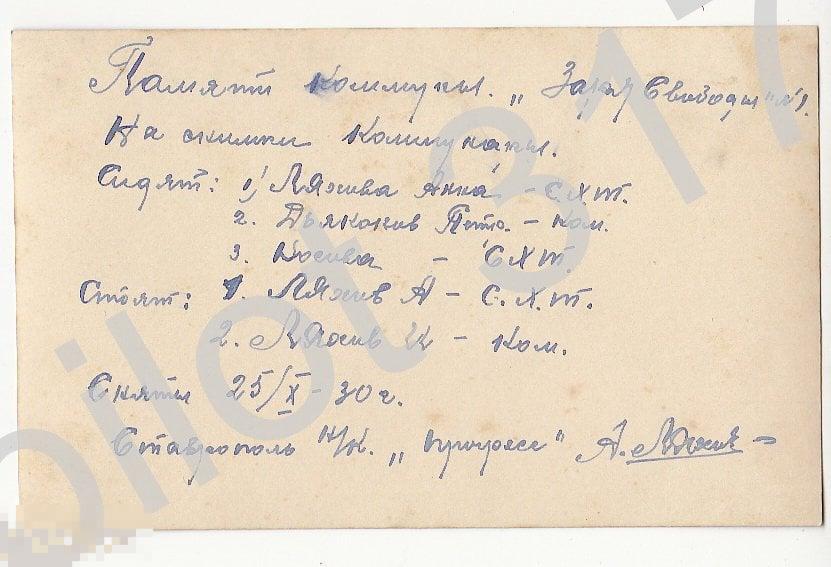 Памят Коммуны. „Заря Свободы" №1.
На снимки Коммунары.
Сидят: 1) Ляхова Анна - С.Х.Т.
2. Дьяконов Петр. - Ком.
3. Носова - СХТ.
Стоят: 1. Ляхов А - С.Х.Т.
2. Ляхов И - Ком.
Сняты 25/X - 30 г.
Ставрополь н/К. „Прогресс" А. Ляхов
pilot 317